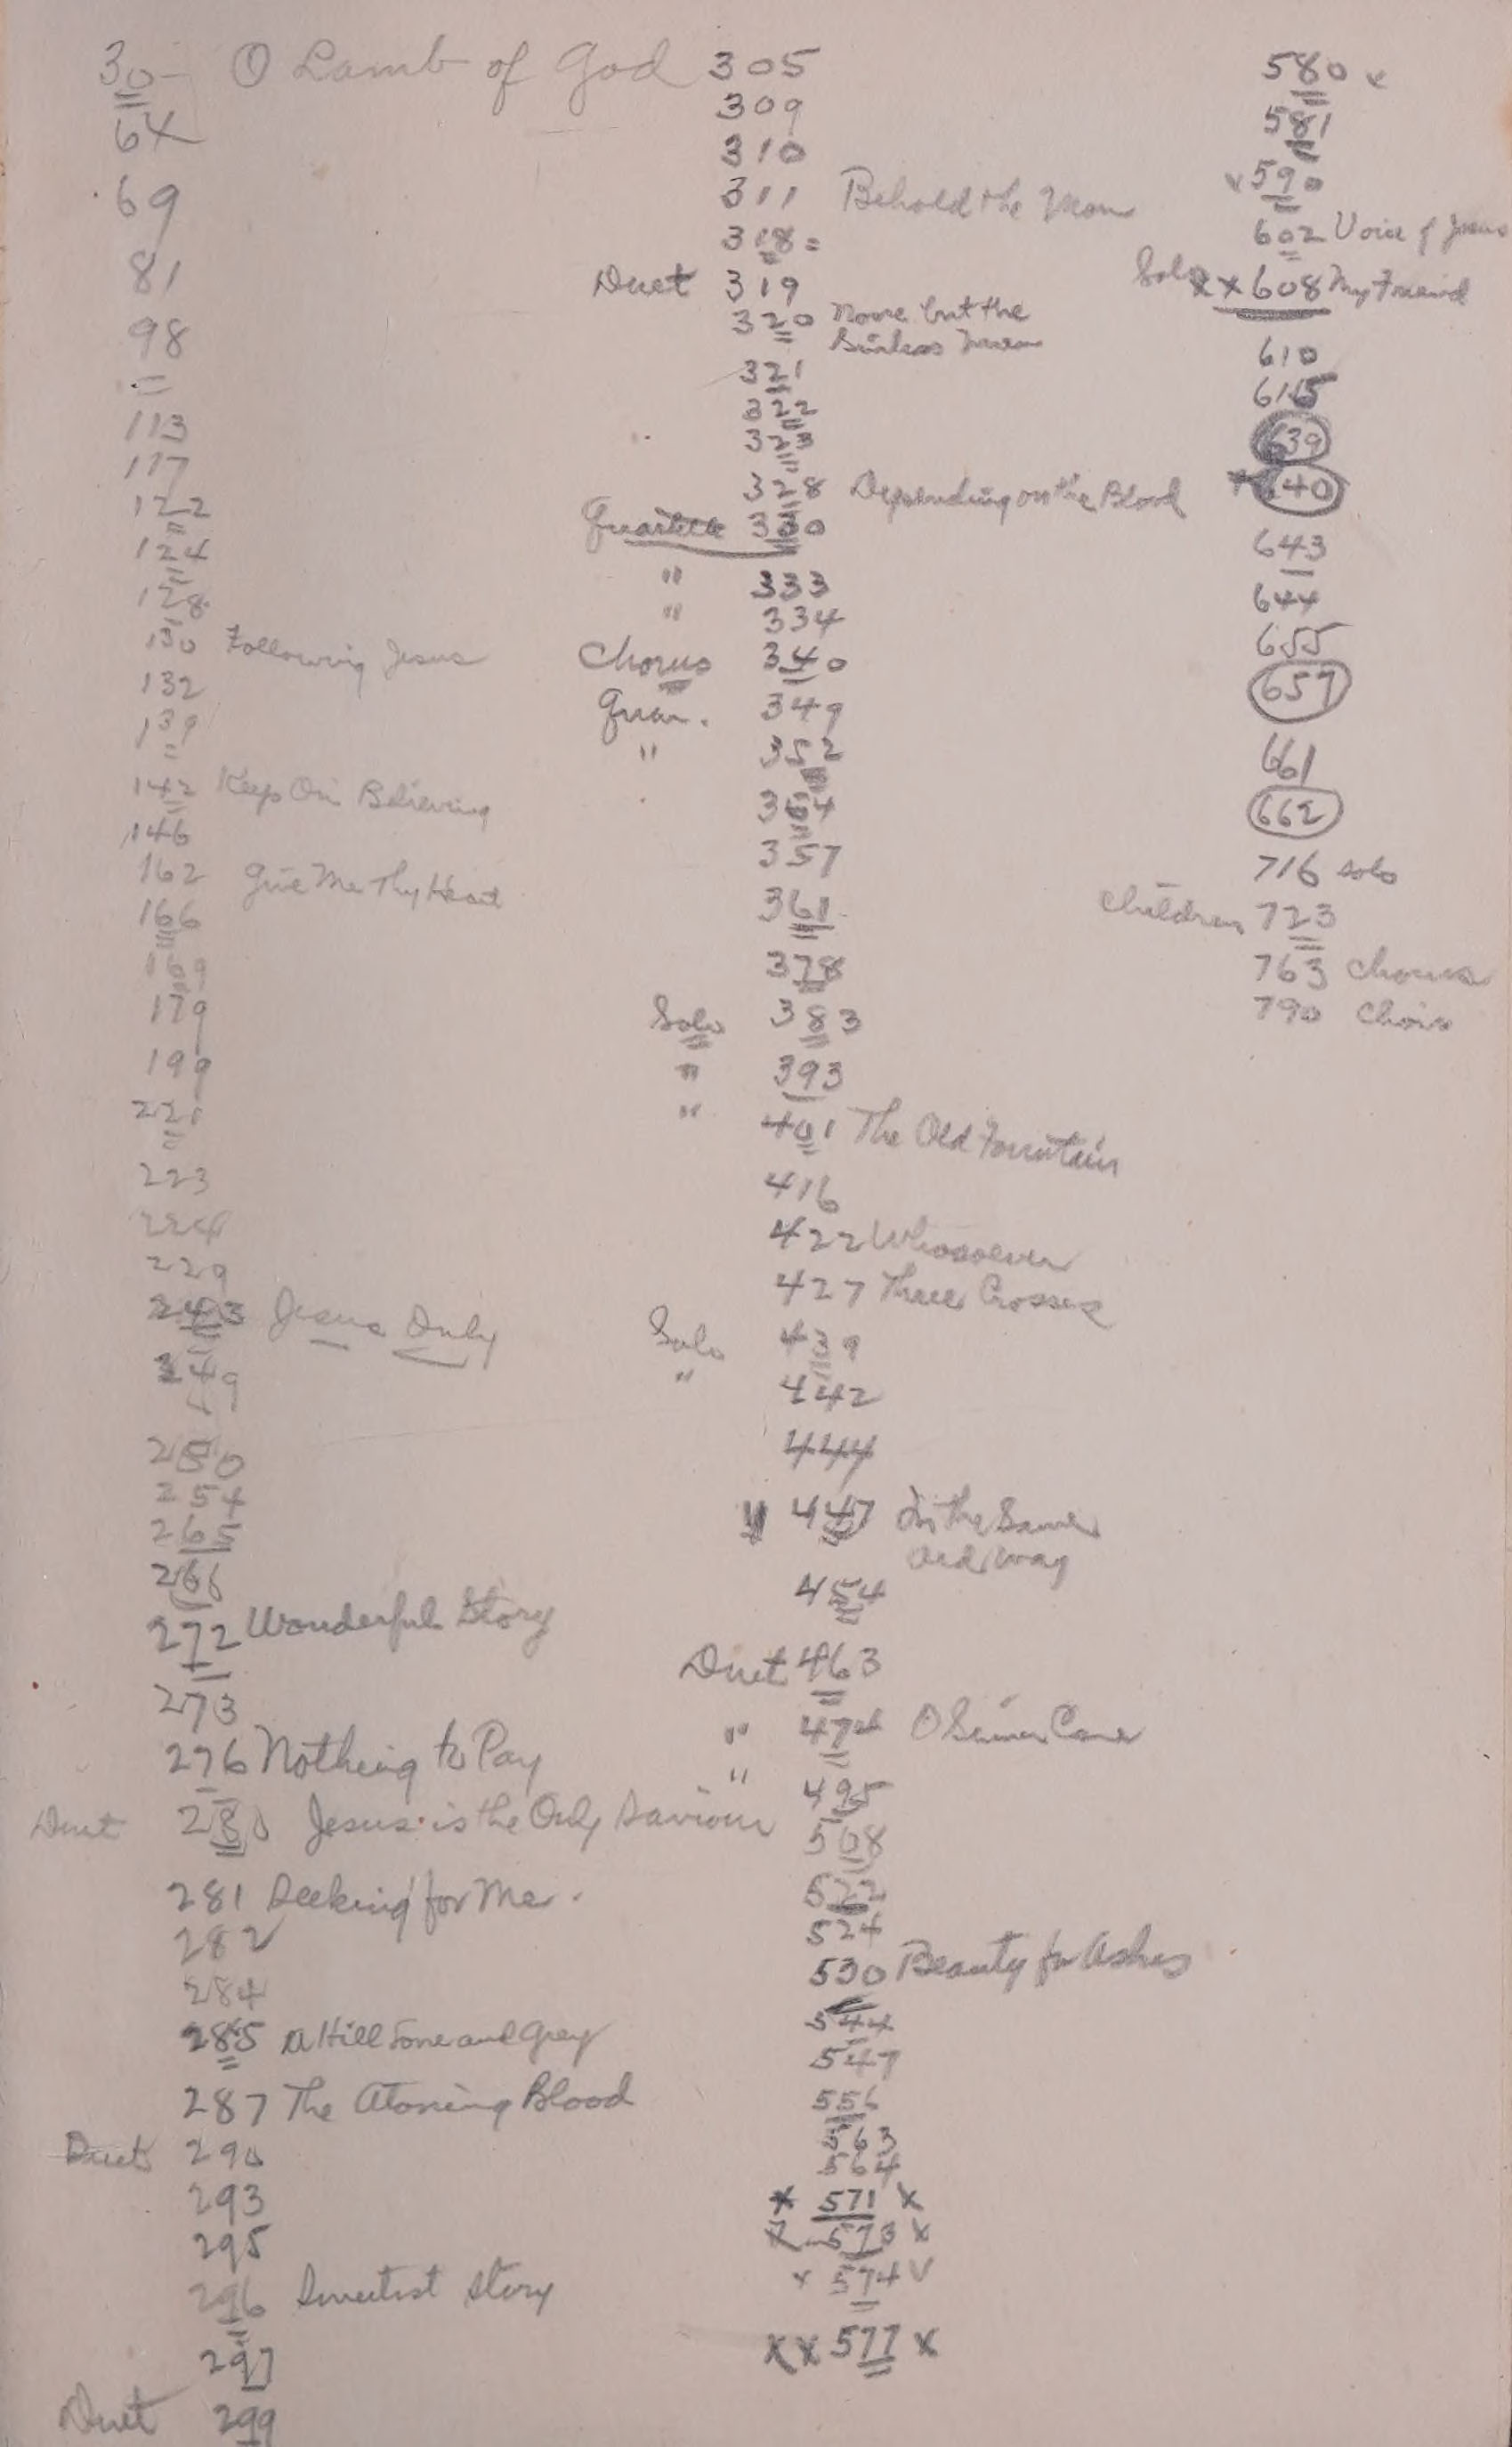 30 - O Lamb of God
64
69
81
98
=
113
117
122
124
128
130 Following Jesus
132
139
142 Keep On Believing
146
162 Give Me Thy Heart
166
169
179
199
221
223
224
229
243 Jesus Only
249
250
254
265
266
272 Wonderful Story
273
276 Nothing to Pay
Duet 280 Jesus is the Only Saviour
281 Seeking for Me.
282
284
285 A Hill Lone and Grey
287 The Atoning Blood
Duet 290
293
295
296 Sweetest Story
297
Duet 299
305
309
310
311 Behold the Man
318 =
Duet 319
320 None but the
Sinless
321
322
323
328 Depending on the Blood
Quartette 330
" 333
" 334
Chorus 340
Quar. 349
" 352
354
357
361
378
Solo 383
" 393
" 401 The Old Fountain
416
422 Whosoever
427 Three Crosses
Solo 439
" 442
444
447 In the Same
Old Way
454
Duet 463
" 474 O Sinner Come
" 495
508
522
524
530 Beauty for Ashes
544
547
556
563
564
* 571 x
x 573 x
x 574 v
x x 577 x
580 x
581
x 590
602 Voice of Jesus
Solo x x 608 My Friend
610
615
639
* 640
643
644
655
657
661
662
716 solo
Children 723
763 Chorus
790 Choir